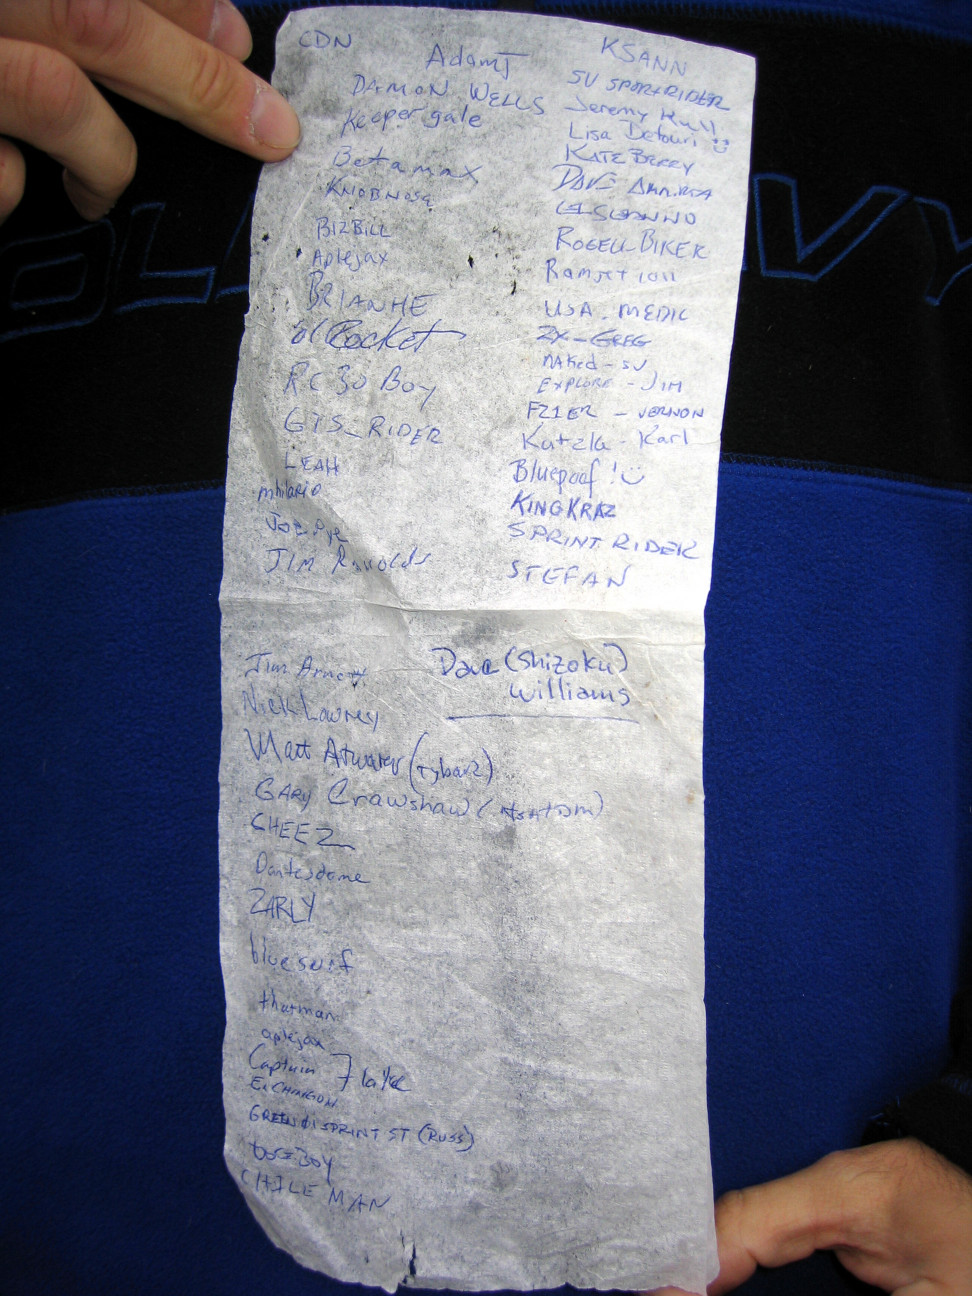 CDN
AdamJ
DAMON WELLS
Keeper gale
Betamax
KNOBNOSE
BIZBILL
Aplejax
BRIANHE
Rocket
RC30 Boy
GTS_RIDER
LEAH
mhilario
Joe Pye
JIM
KSANN
SV SPORTRIDER
Jeremy Hull
Lisa Detouri
KATE BERRY
DAVE
ROGELL BIKER
Ramjet1011
USA.MEDIC
ZX-GREG
NAKed-SV
EXPLORE-JIM
FZ1ER - VERNON
Kutzla-Karl
Bluepoof!
KINGKRAZ
SPRINT RIDER
STEFAN
Jim Arnett
Nick Lowrey
Matt Atwater (Tybarz)
GARY Crawshaw
Dave (Shizoku)
Williams
CHEEZ
Dantesdame
ZARLY
bluesurf
thatman
aplejax
Captain Flake
EXCHINGON
GREEN01SPRINT ST (RUSS)
BOY
CHILE MAN